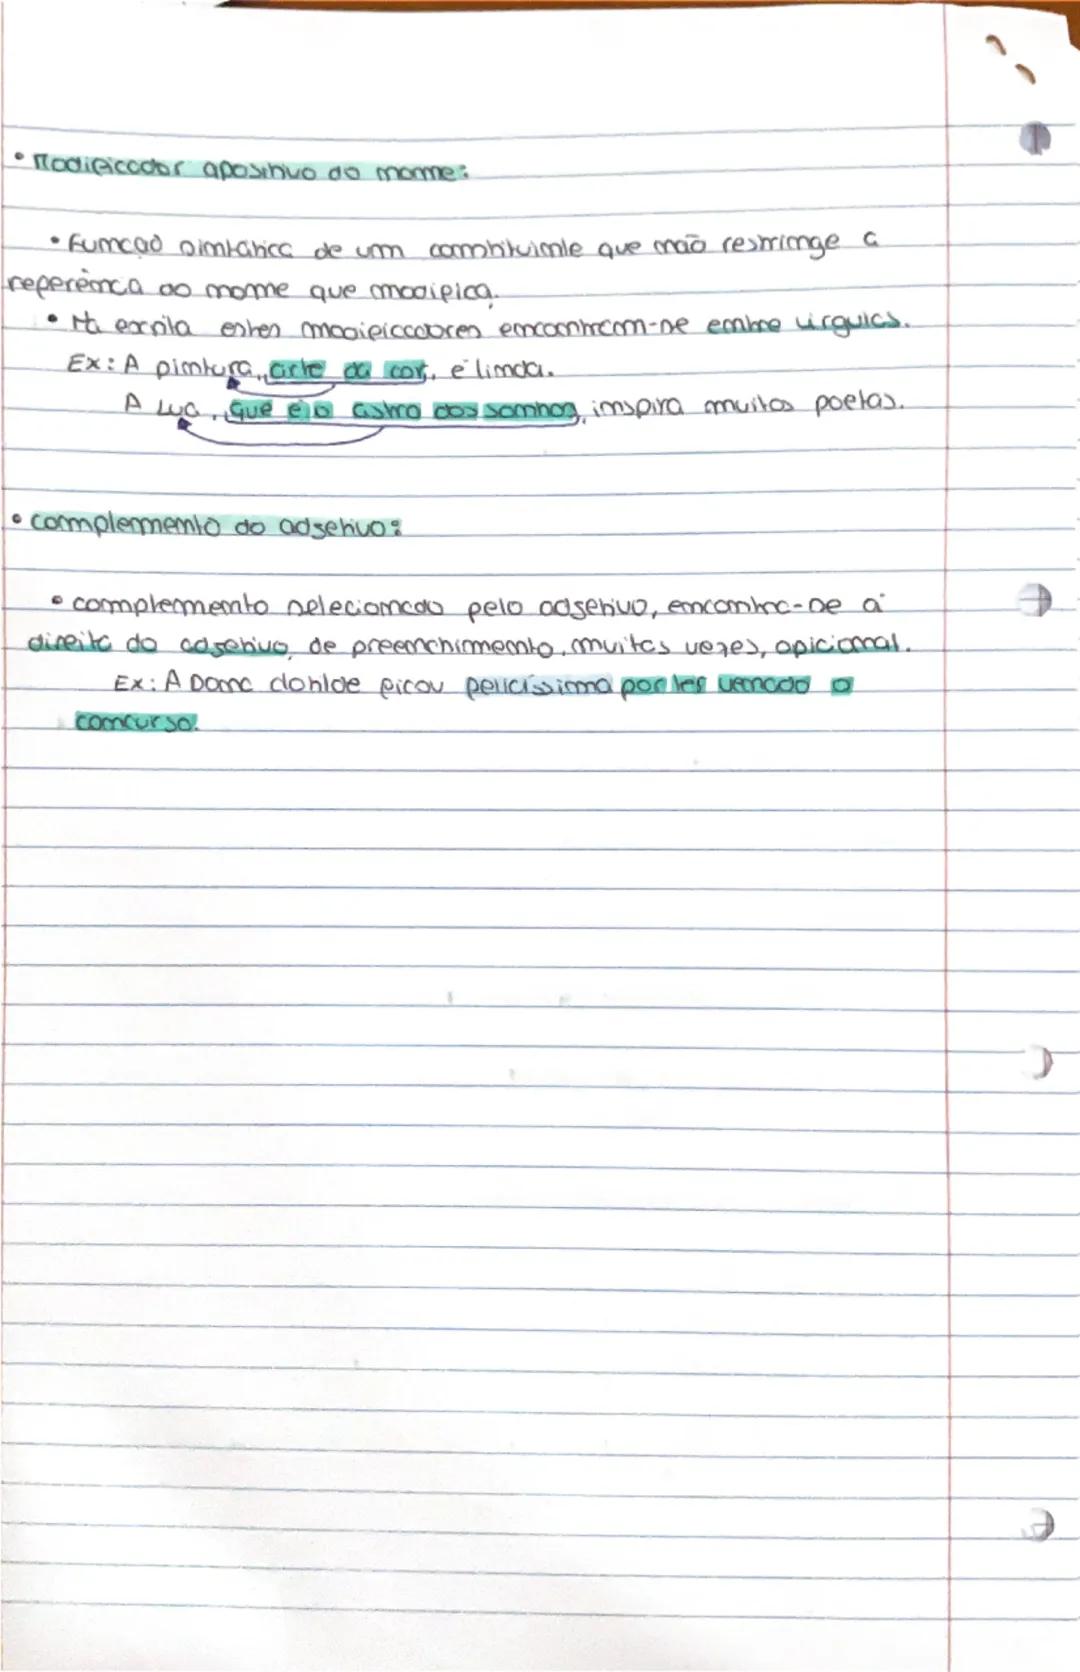 • Modificador apositivo do nome:
• Função sintática de um constituinte que não restringe a
referência ao nome que modifica.
• Na escrita estes modificadores encontram-se entre vírgulas.
Ex: A pintura, arte da cor, é linda.
A Lua, que é o astro dos sonhos, inspira muitos poetas.
• complemento do adjetivo:
• complemento selecionado pelo adjetivo, encontra-se à
direita do adjetivo, de preenchimento, muitas vezes, opicional.
Ex: A Dona clotilde ficou felicíssima por ter vencido o
concurso.